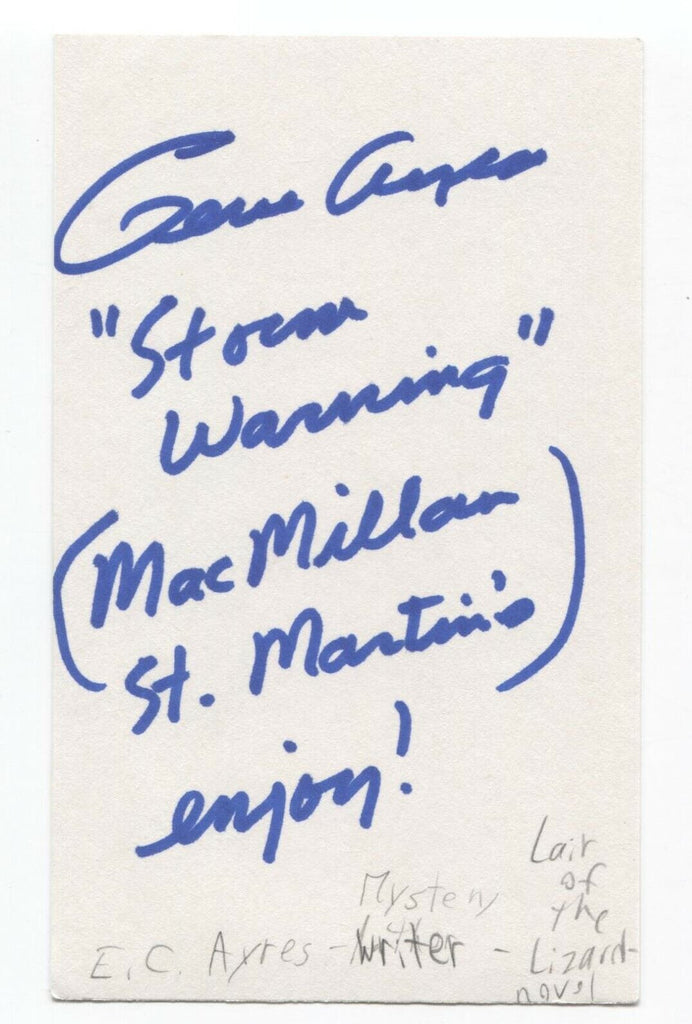 Gene Ayres
"Storm
Warning"
(MacMillan
St. Martin's)
enjoy!
E.C. Ayres - Mystery writer - Lair
of
the
Lizard-
novel